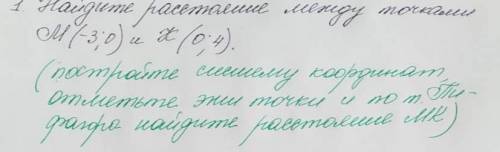 1. Найдите расстояние между точками
М(-3;0) и К(0;4).
(постройте систему координат,
отметьте эти точки и по т. Пи-
фагра найдите расстояние МК)